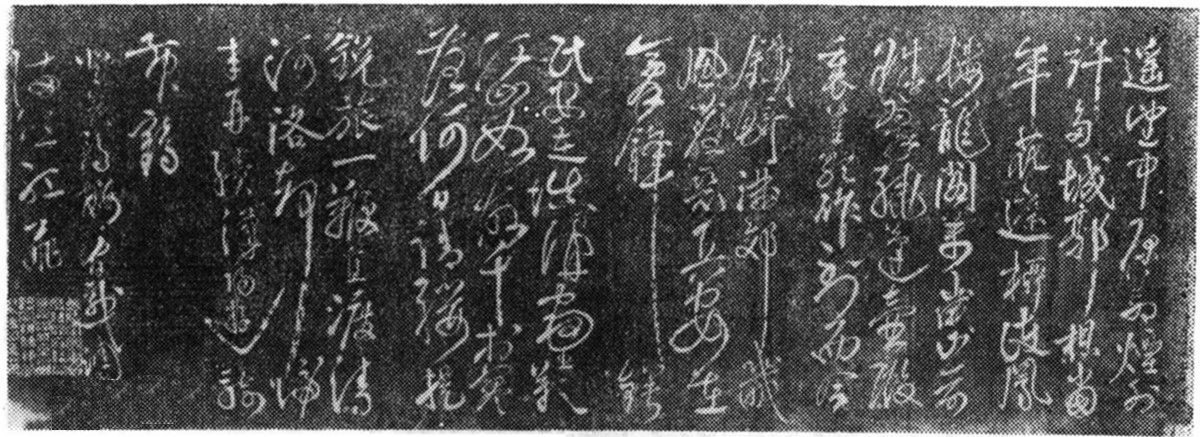 遙望中原荒煙外
許多城郭想當
年花遮柳護鳳
樓龍閣萬歲山前
珠翠繞蓬壺殿
裏笙歌作到而今
鐵騎滿郊畿
風塵惡兵安在
膏鋒鍔
民安在填溝壑嘆
江山如故千村寥
落何日請纓提
銳旅一鞭直渡清
河洛却歸
來再續漢陽遊騎
黃鶴
登黃鶴樓有感調
滿江紅岳飛